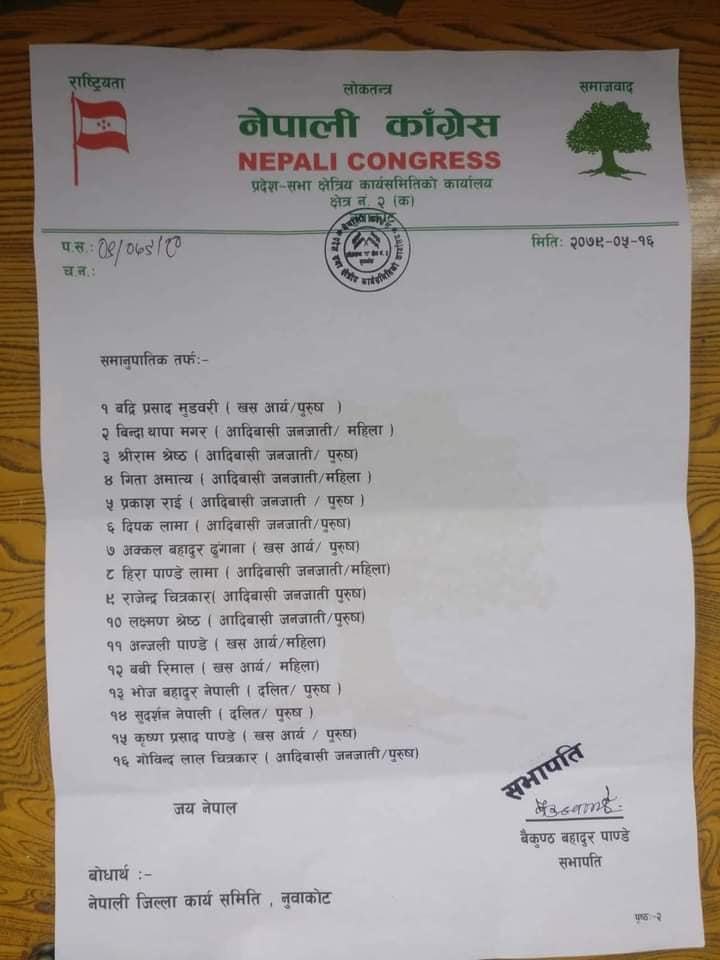 राष्ट्रियता
लोकतन्त्र
समाजवाद
नेपाली काँग्रेस
NEPALI CONGRESS
प्रदेश-सभा क्षेत्रिय कार्यसमितिको कार्यालय
क्षेत्र नं. २ (क)
प.स.:
मिति: २०७९-०५-१६
च.न.:
समानुपातिक तर्फ:-
१ बद्रि प्रसाद मुडवरी ( खस आर्य/पुरुष )
२ बिन्दा थापा मगर ( आदिबासी जनजाती/ महिला )
३ श्रीराम श्रेष्ठ ( आदिबासी जनजाती/ पुरुष)
४ गिता अमात्य ( आदिबासी जनजाती/महिला )
५ प्रकाश राई ( आदिबासी जनजाती / पुरुष )
६ दिपक लामा ( आदिबासी जनजाती/पुरुष)
७ अक्कल बहादुर ढुंगाना ( खस आर्य/ पुरुष)
८ हिरा पाण्डे लामा ( आदिबासी जनजाती/महिला)
९ राजेन्द्र चित्रकार( आदिबासी जनजाती पुरुष)
१० लक्ष्मण श्रेष्ठ ( आदिबासी जनजाती/पुरुष)
११ अन्जली पाण्डे ( खस आर्य/महिला)
१२ बबी रिमाल ( खस आर्य/ महिला)
१३ भोज बहादुर नेपाली ( दलित/ पुरुष )
१४ सुदर्शन नेपाली ( दलित/ पुरुष )
१५ कृष्ण प्रसाद पाण्डे ( खस आर्य / पुरुष)
१६ गोविन्द लाल चित्रकार ( आदिबासी जनजाती/पुरुष)
सभापति
जय नेपाल
बैकुण्ठ बहादुर पाण्डे
सभापति
बोधार्थ :-
नेपाली जिल्ला कार्य समिति , नुवाकोट
पृष्ठ:-२